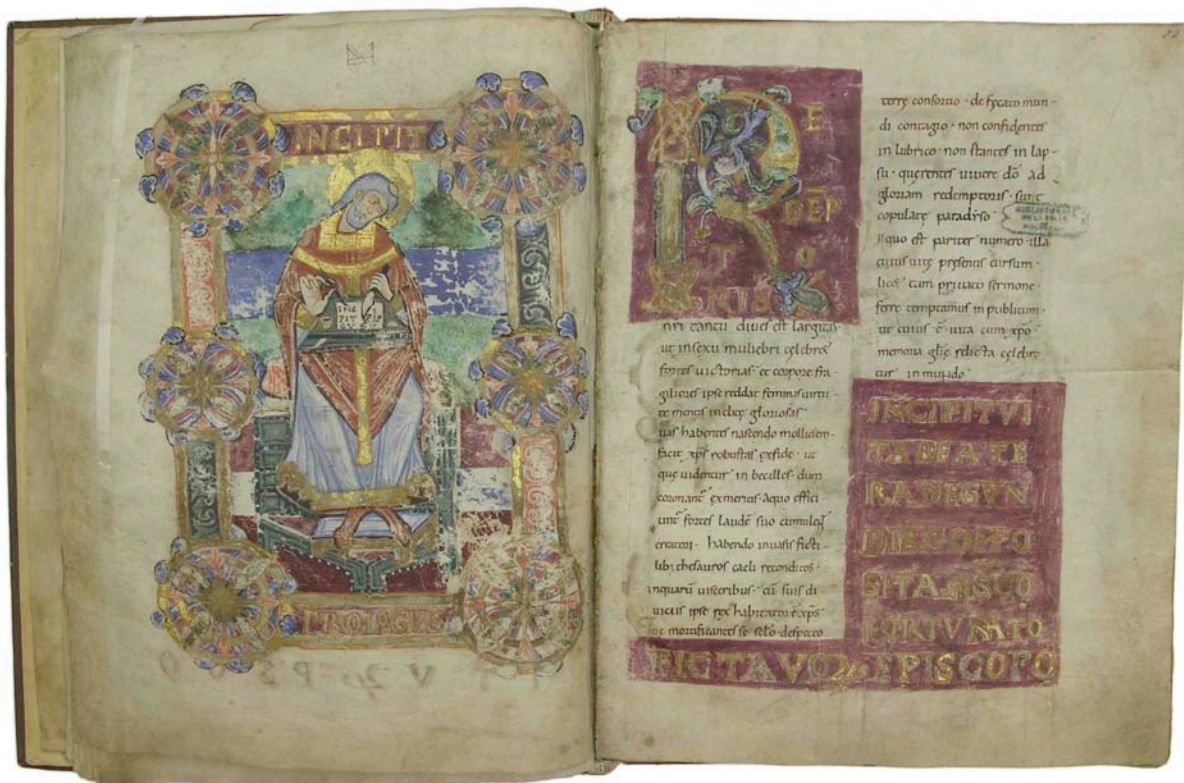 INCIPIT
PROLOGUS
22
R E
DEP̄
T O
RIS
nri tantū diues est largitas
ut insexu muliebri celebret
fortes uictorias · et corpore fra
giliores ipse reddat feminas uirtu
te mentis inclite gloriosas
habentes nascendo molliciem ·
facit xp̄s robustas exfide · ut
que uidentur inbecilles · dum
coronant̄ exmeritis · aquo effici
unt̄ fortes laudē suo cumulent
creatori · habendo inuasis ficti-
lib; thesauros caeli reconditos ·
inquarū uisceribus · cū suis di
uiciis ipse rex habitator ē xp̄s
mortificantes se sc̄lo · despecto
terrę consortio · defęcato mun-
di contagio · non confidentes
in lubrico · non stantes in lap-
su · querentes uiuere dō ad
gloriam redemptoris · sunt
copulatę paradyso ·
Inquo est pariter numero illa
cuius uitę presentis cursum ·
licet tam priuato sermone ·
ferre temptamus in publicum ·
ut cuius ē uita cum xp̄o ·
memoria glię relicta celebre
tur in mundo
INCIPIT VI
TA BEATE
RADEGVN
DIS COPO
SITA A SCO
FORTVNATO
PICTAVOꝜ EPISCOPO